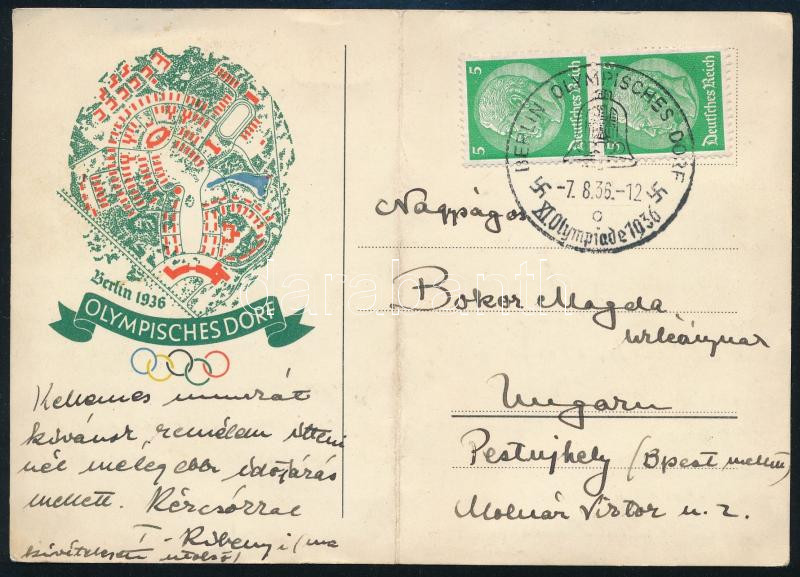 5
Deutsches Reich
5
Deutsches Reich
BERLIN OLYMPISCHES DORF
-7.8.36.-12
XI.Olympiade 1936
Berlin 1936
OLYMPISCHES DORF
darabanth
Nagyságos
Bokor Magda
urleánynak
Ungarn
Pestujhely (Bpest mellett)
Molnár Viktor u. 2.
Kellemes
kivánok, remélem itteni
nél melegebb időjárás
mellett. Kézcsókkal